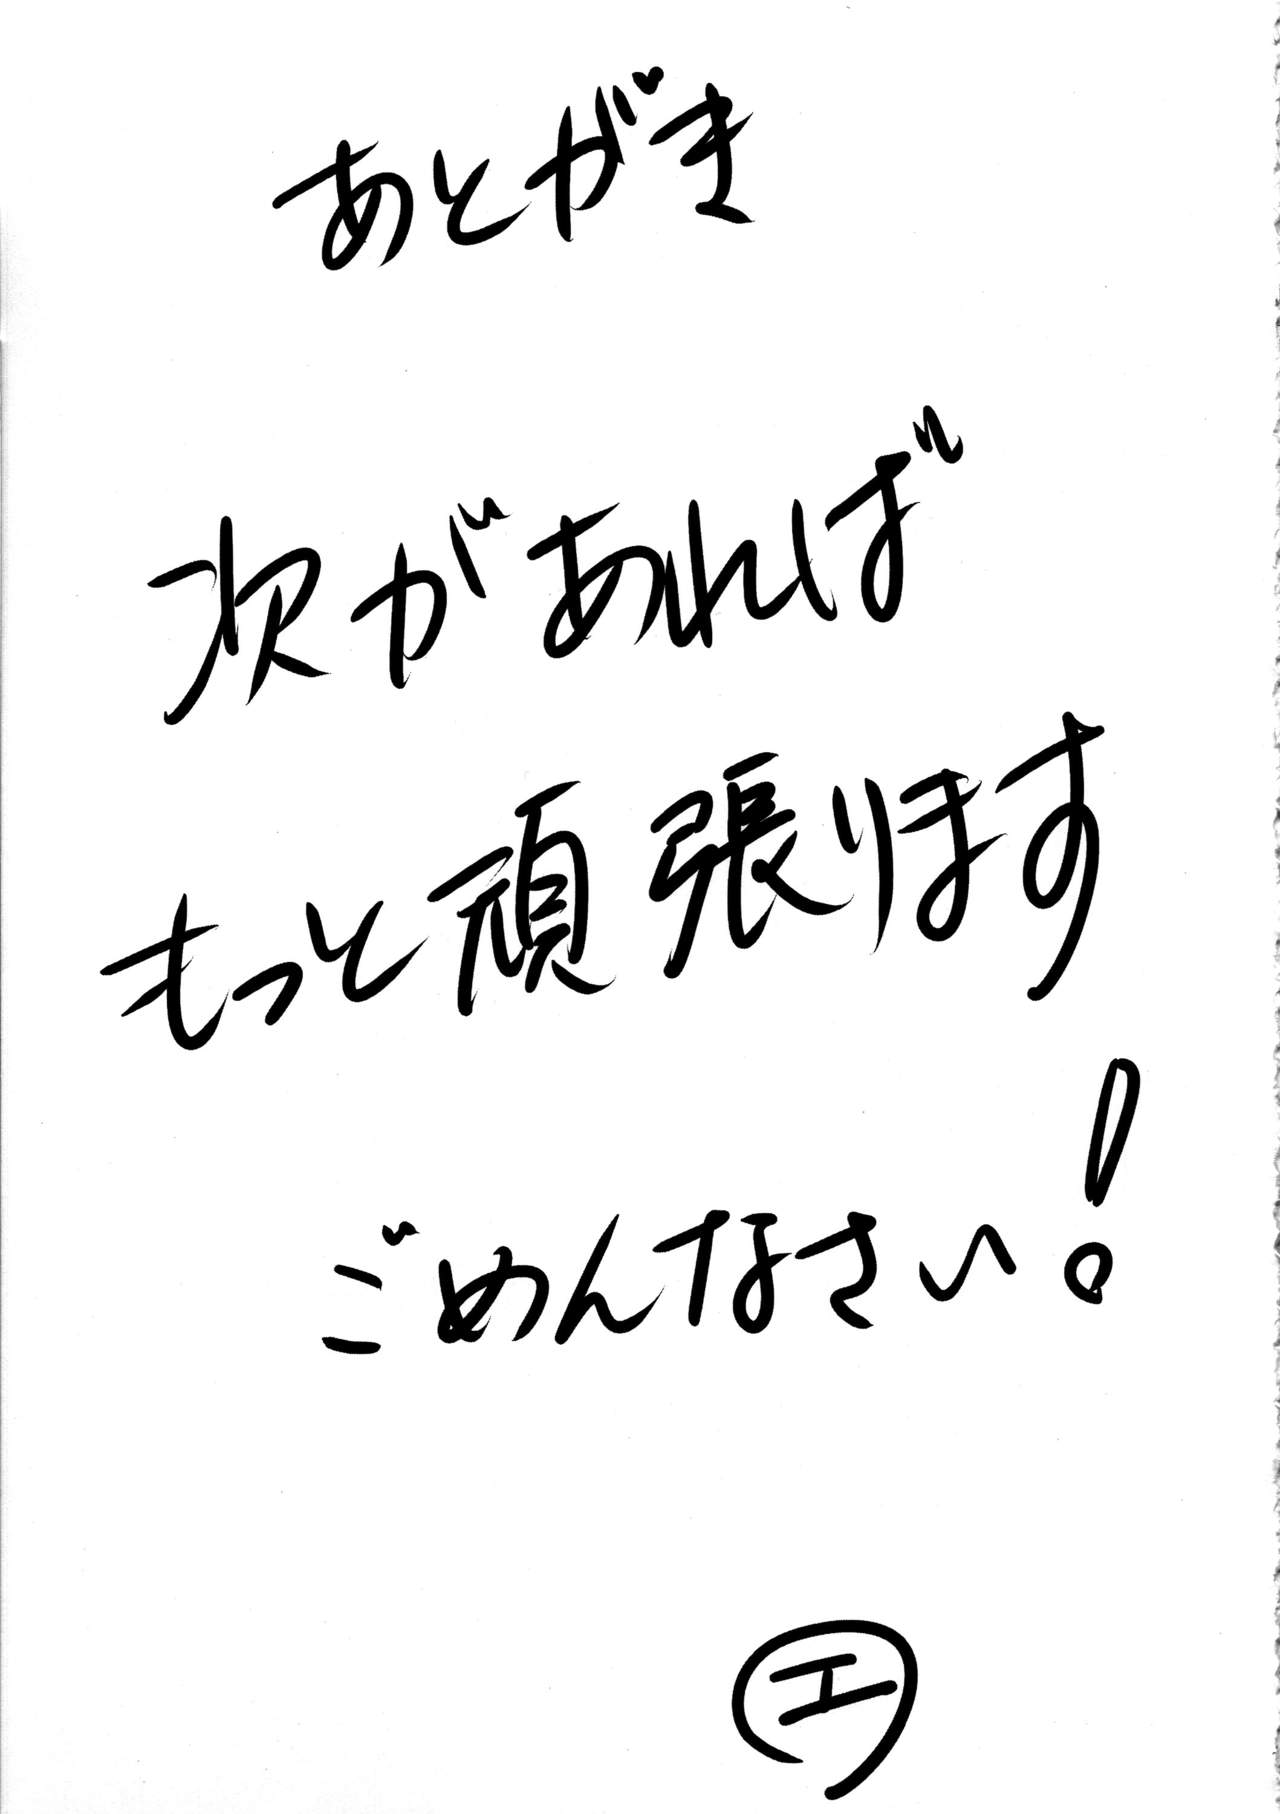 あとがき
次があれば
もっと頑張ります
ごめんなさい!
エ